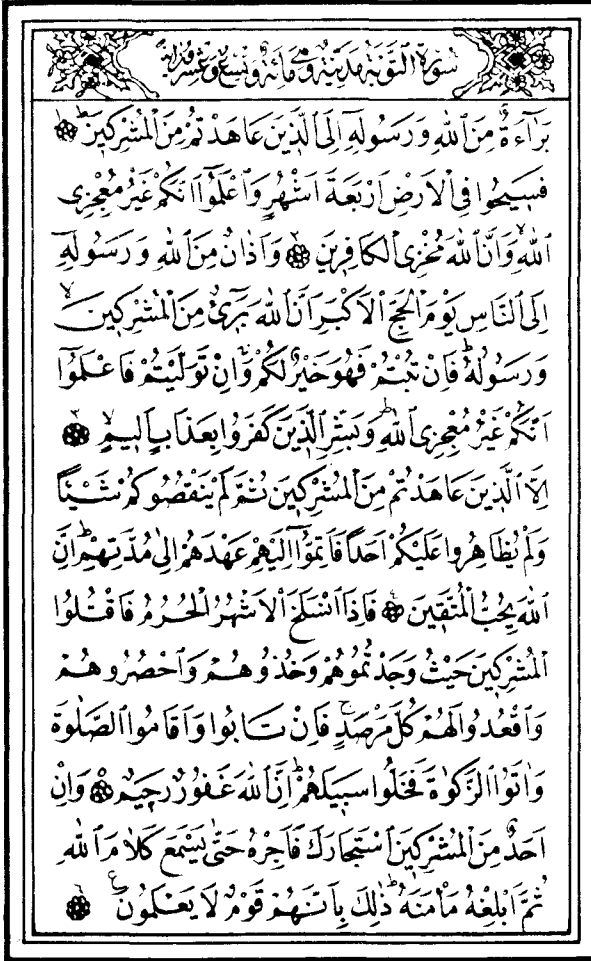 سُورَةُ التَّوْبَةِ مَدَنِيَّةٌ وَهِيَ مِائَةٌ وَتِسْعٌ وَعِشْرُونَ آيَةً
بَرَٓاءَةٌ مِنَ اللّٰهِ وَرَسُولِهٖٓ اِلَى الَّذٖينَ عَاهَدْتُمْ مِنَ الْمُشْرِكٖينَؕ
فَسٖيحُوا فِى الْاَرْضِ اَرْبَعَةَ اَشْهُرٍ وَاعْلَمُٓوا اَنَّكُمْ غَيْرُ مُعْجِزِى
اللّٰهِۙ وَاَنَّ اللّٰهَ مُخْزِى الْكَافِرٖينَ وَاَذَانٌ مِنَ اللّٰهِ وَرَسُولِهٖٓ
اِلَى النَّاسِ يَوْمَ الْحَجِّ الْاَكْبَرِ اَنَّ اللّٰهَ بَرٖٓىءٌ مِنَ الْمُشْرِكٖينَۙ
وَرَسُولُهُؕ فَاِنْ تُبْتُمْ فَهُوَ خَيْرٌ لَكُمْۚ وَاِنْ تَوَلَّيْتُمْ فَاعْلَمُٓوا
اَنَّكُمْ غَيْرُ مُعْجِزِى اللّٰهِؕ وَبَشِّرِ الَّذٖينَ كَفَرُوا بِعَذَابٍ اَلٖيمٍۙ
اِلَّا الَّذٖينَ عَاهَدْتُمْ مِنَ الْمُشْرِكٖينَ ثُمَّ لَمْ يَنْقُصُوكُمْ شَيْئًا
وَلَمْ يُظَاهِرُوا عَلَيْكُمْ اَحَدًا فَاَتِمُّٓوا اِلَيْهِمْ عَهْدَهُمْ اِلٰى مُدَّتِهِمْؕ اِنَّ
اللّٰهَ يُحِبُّ الْمُتَّقٖينَ فَاِذَا انْسَلَخَ الْاَشْهُرُ الْحُرُمُ فَاقْتُلُوا
الْمُشْرِكٖينَ حَيْثُ وَجَدْتُمُوهُمْ وَخُذُوهُمْ وَاحْصُرُوهُمْ
وَاقْعُدُوا لَهُمْ كُلَّ مَرْصَدٍۚ فَاِنْ تَابُوا وَاَقَامُوا الصَّلٰوةَ
وَاٰتَوُا الزَّكٰوةَ فَخَلُّوا سَبٖيلَهُمْؕ اِنَّ اللّٰهَ غَفُورٌ رَحٖيمٌ وَاِنْ
اَحَدٌ مِنَ الْمُشْرِكٖينَ اسْتَجَارَكَ فَاَجِرْهُ حَتّٰى يَسْمَعَ كَلَامَ اللّٰهِ
ثُمَّ اَبْلِغْهُ مَاْمَنَهُؕ ذٰلِكَ بِاَنَّهُمْ قَوْمٌ لَا يَعْلَمُونَ ع